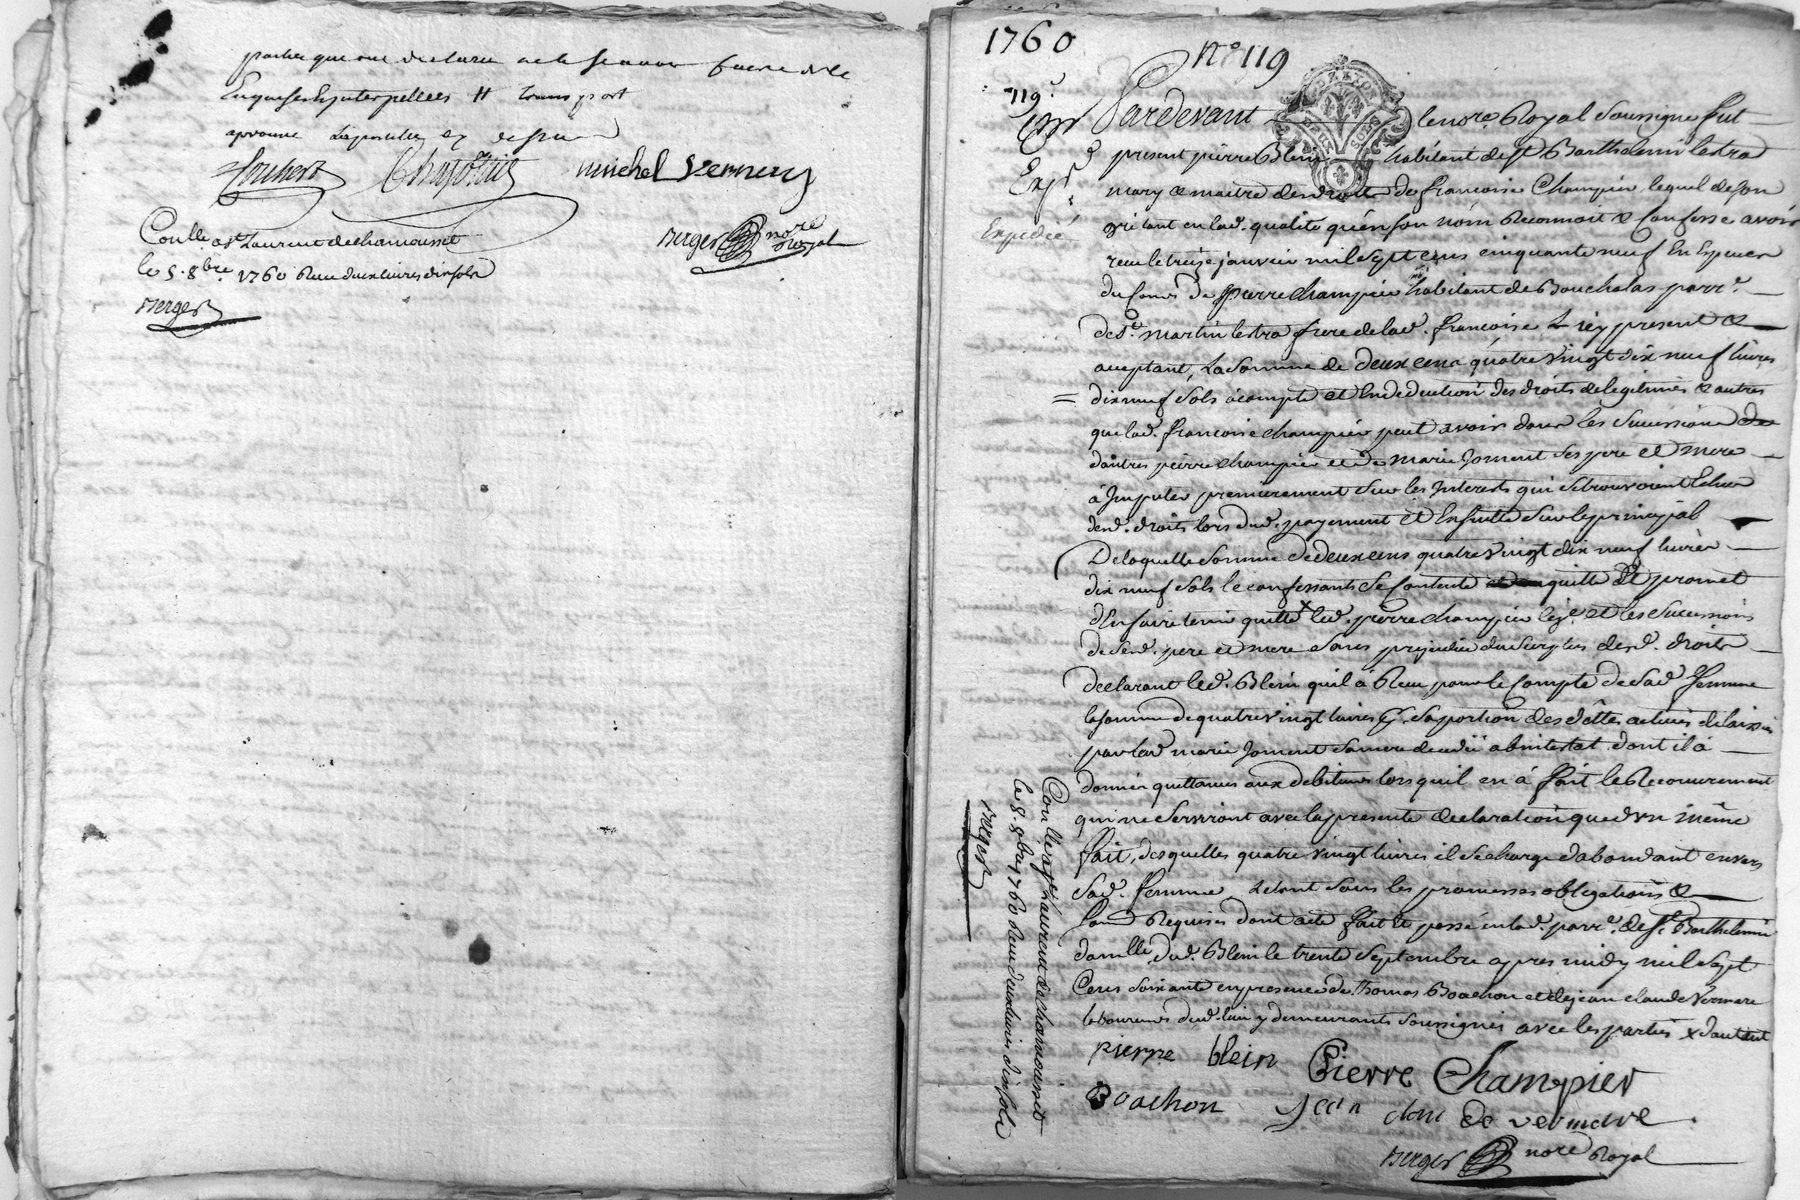 partie que ont declaré ne le scavoir faire de ce
Enquises & interpellées # transport
approuvé
Joubert Chapolais michel verneuy
Conllé a St Laurent de chamousset
le 8. 8bre 1760 Reçu deux livres dix sols
Berger
Berger nore Royal
1760
n° 119
119e
Expédiée
Pardevant le nore Royal soussigné fut
present pierre Blein habitant de St Barthelemi lestra
mary & maitre des droits de francoise Champier lequel de son
gré tant en lad. qualité qu'en son nom Reconnoit & Confesse avoir
reçu le treize janvier mil sept cens cinquante neuf En Especes
du Cours de pierre champier habitant de Boucholas parr.e
de St martin lestra frere de lad. francoise Icy present &
acceptant, La Somme de deux cens quatre vingt dix neuf livres
dix neuf sols à compte et En deduction des droits de legitimes & autres
que lad. francoise champier peut avoir dans les Successions de
d'autres pierre champier et de marie Joment ses pere et mere
à Imputer premierement sur les Interets qui se trouvoient Echus
desd. droits lors dud. payement et Ensuitte sur le principal
De laquelle Somme de deux cens quatre vingt dix neuf livres
dix neuf sols le confessant se contente quitte Et promet
d'En faire tenir quitte led. pierre champier et les Successions
de sesd. pere et mere sans prejudice du surplus desd. droits
declarant led. Blein quil a Reçu pour le Compte de sad. femme
la somme de quatre vingt livres sa portion des dettes actives delaissées
par lad. marie Joment sa mere decedée abintestat dont il a
donné quittances aux debiteurs lorsquil en à fait le Recouvrement
qui ne serviront avec la presente declaration que d'un même
fait, desquelles quatre vingt livres il se charge d'abondant envers
sad. femme le tout sous les promesses obligations &
Requises dont acte fait Et passé en lad. parr.e de St Barthelemi
domlle dud. Blein le trente Septembre apres midy mil sept
Cens soixante en presence de Thomas Boachon et de jean claude Vermare
laboureurs dud. lieu y demeurants soussignés avec les parties
pierre blein Pierre Champier
Boachon Jean clau de vermare
Berger nore Royal
Conllé a St Laurent de chamousset
le 8. 8bre 1760 Reçu deux livres dix sols
Berger